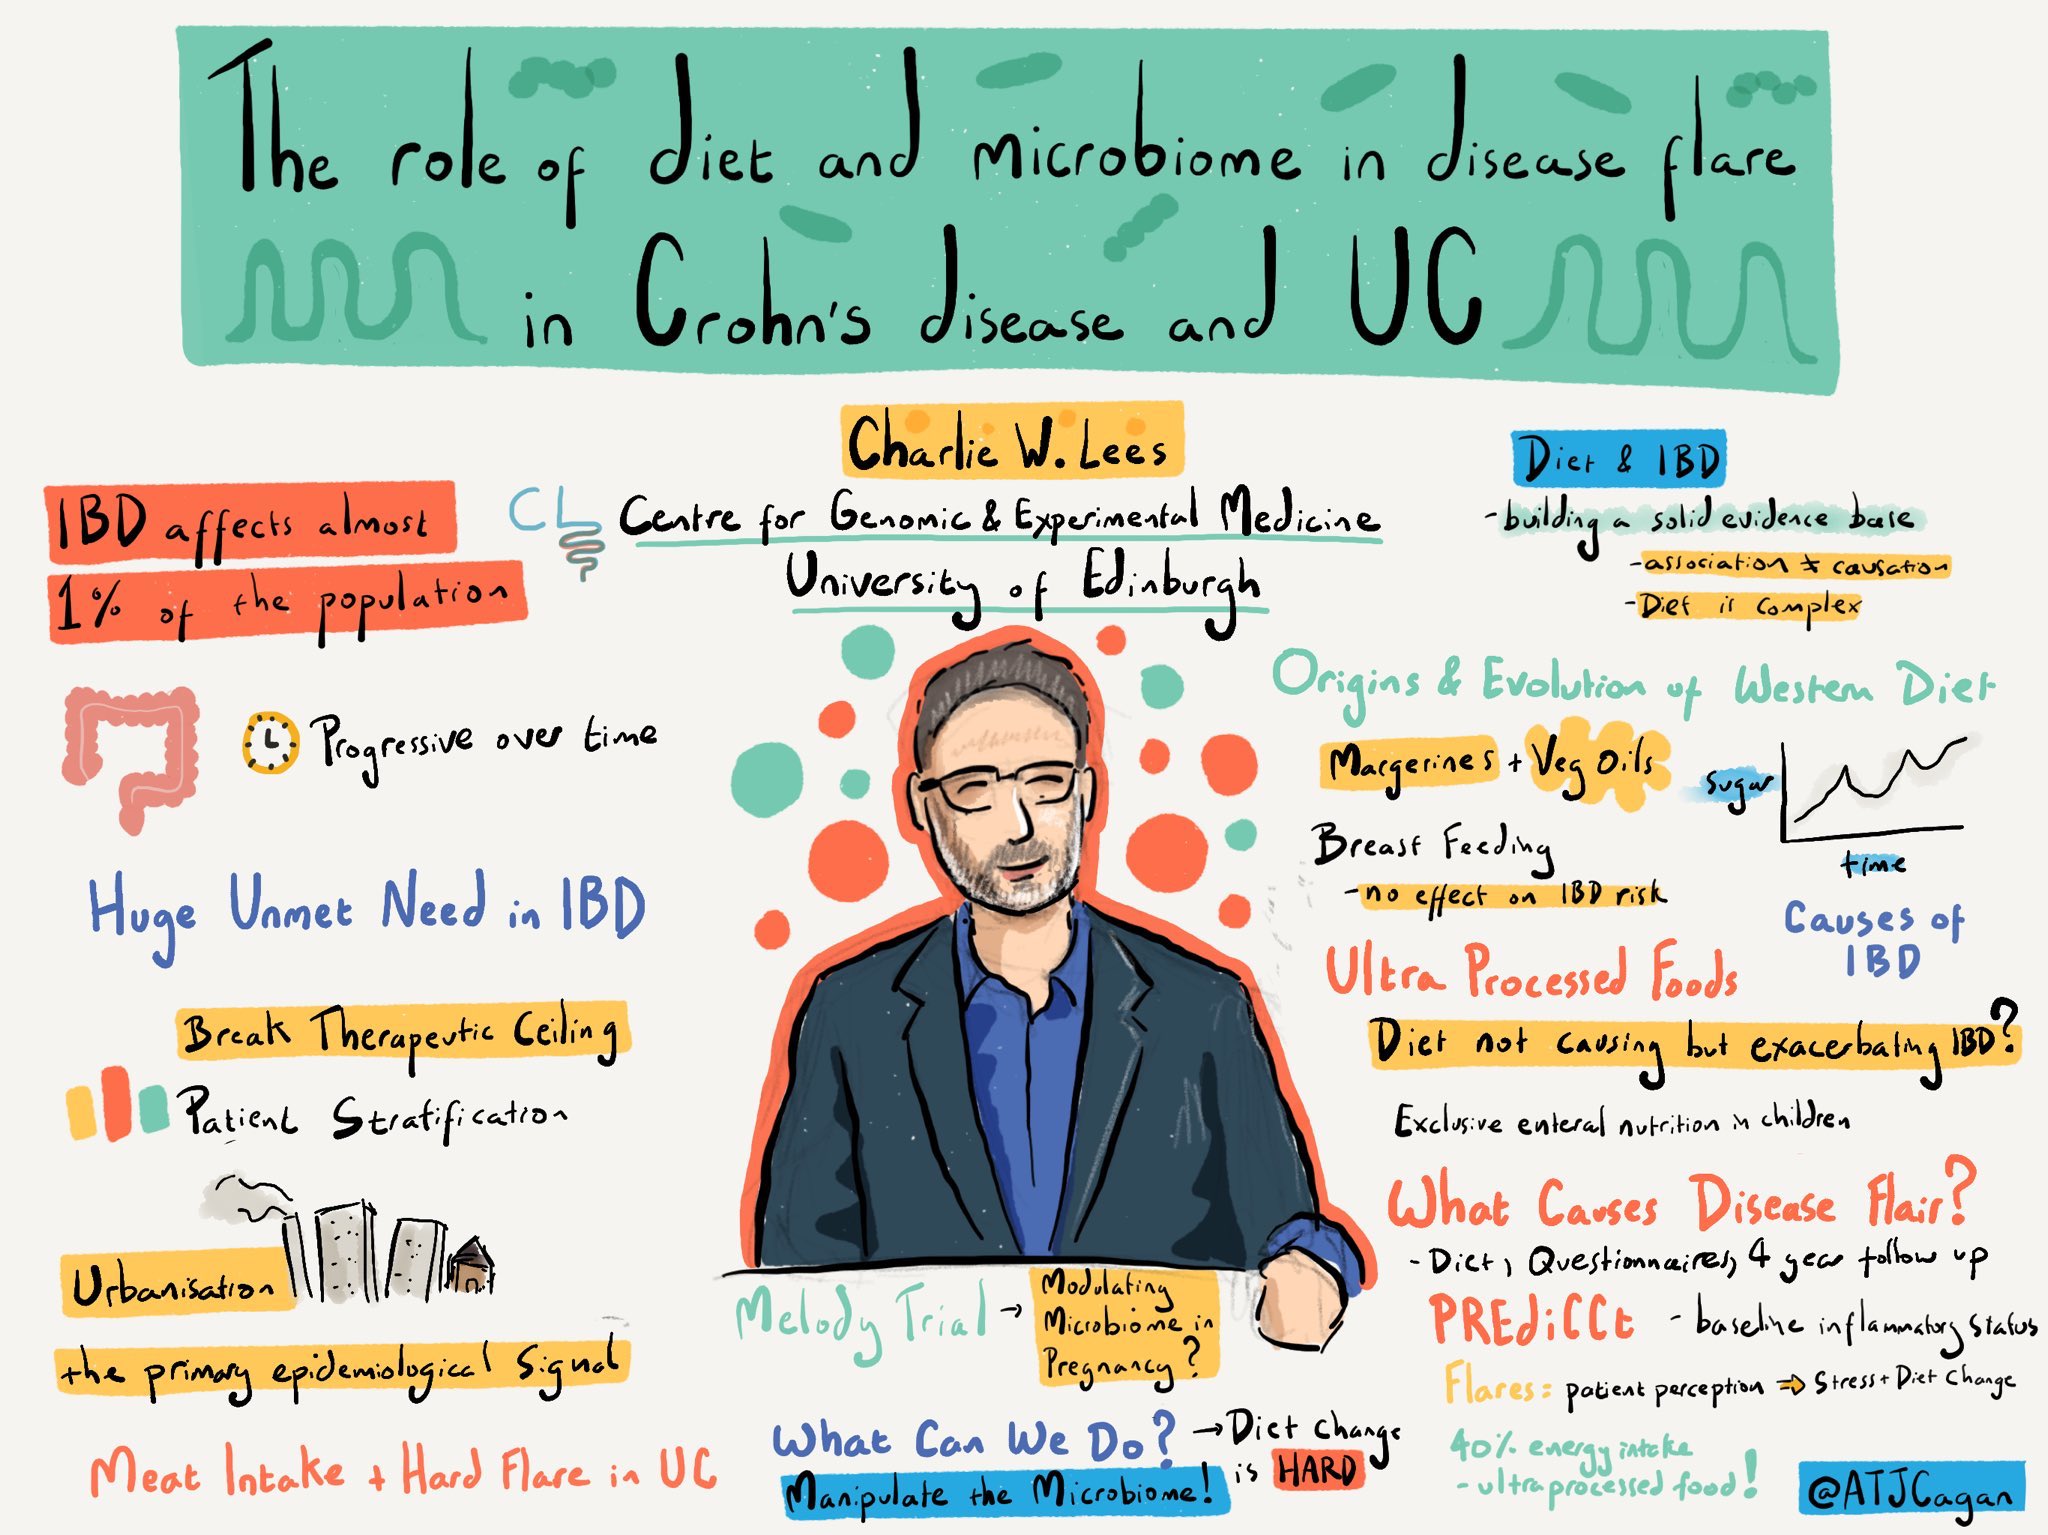 The role of diet and microbiome in disease flare
in Crohn's disease and UC
Charlie W. Lees
CL
Centre for Genomic & Experimental Medicine
University of Edinburgh
IBD affects almost
1% of the population
Progressive over time
Huge Unmet Need in IBD
Break Therapeutic Ceiling
Patient Stratification
Urbanisation
the primary epidemiological Signal
Meat Intake + Hard Flare in UC
Melody Trial →
Modulating
Microbiome in
Pregnancy?
What Can We Do?
→ Diet change
is HARD
Manipulate the Microbiome!
Diet & IBD
- building a solid evidence base
- association ≠ causation
- Diet is complex
Origins & Evolution of Western Diet
Margerines + Veg Oils
sugar
time
Breast Feeding
- no effect on IBD risk
Causes of
IBD
Ultra Processed Foods
Diet not causing but exacerbating IBD?
Exclusive enteral nutrition in children
What Causes Disease Flair?
- Diet, Questionnaires, 4 year follow up
PREdiCCt - baseline inflammatory status
Flares = patient perception ⇒ Stress + Diet Change
40% energy intake
- ultraprocessed food!
@ATJCagan